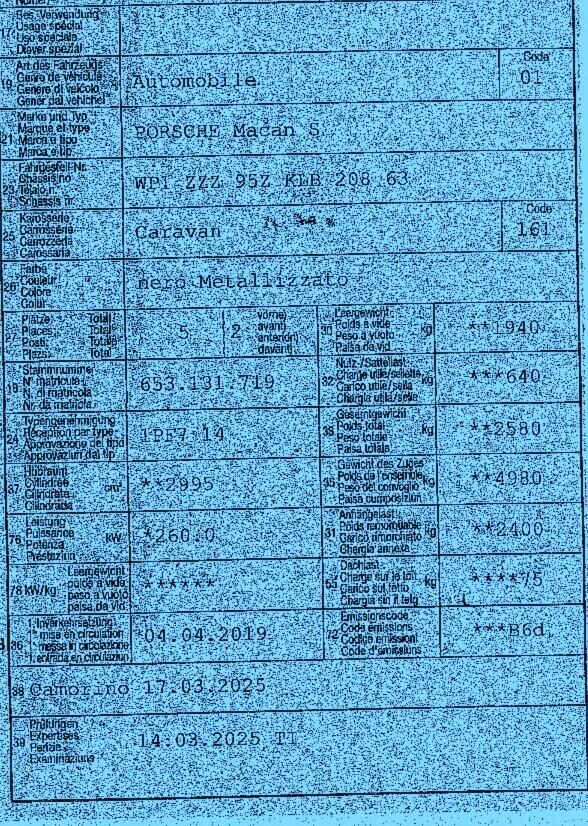 Bes. Verwendung
17 Usage spécial
Uso speciale
Diever spezial
Art des Fahrzeugs
19 Genre de véhicule
Genere di veicolo
Gener dal vehichel
Automobile
Code
01
Marke und Typ
21 Marque et type
Marca e tipo
Marca e tip
PORSCHE Macan S
Fahrgestell-Nr.
23 Châssis no
Telaio n.
Schassis nr.
WP1 ZZZ 95Z KLB 208 63
Karosserie
25 Carrosserie
Carrozzeria
Carossaria
Caravan
Code
161
Farbe
26 Couleur
Colore
Colur
nero Metallizzato
Plätze: Total
27 Places: Total
Posti: Totale
Plazs: Total
5
2
vorne
avanti
anteriori
davant
30 Leergewicht
Poids à vide
Peso a vuoto
Paisa da vid
kg
**1940
Stammnummer
18 N° matricule
N. di matricola
Nr. da matricla
653.131.719
32 Nutz-/Sattellast
Charge utile/sellette
Carico utile/sella
Chargia utila/sella
kg
***640
Typengenehmigung
24 Réception par type
Approvazione del tipo
Approvaziun dal tip
1PF7 14
33 Gesamtgewicht
Poids total
Peso totale
Paisa totala
kg
**2580
Hubraum
37 Cylindrée
Cilindrata
Cilindrada
cm³
**2995
35 Gewicht des Zuges
Poids de l'ensemble
Peso del convoglio
Paisa cumposiziun
kg
**4980
Leistung
76 Puissance
Potenza
Prestaziun
kW
*260.0
31 Anhängelast
Poids remorquable
Carico rimorchiato
Chargia annexa
kg
**2400
78 kW/kg
Leergewicht
poids à vide
peso a vuoto
paisa da vid
******
55 Dachlast
Charge sur le toit
Carico sul tetto
Chargia sin il tetg
kg
****75
36 1. Inverkehrsetzung
1re mise en circulation
1a messa in circolazione
1. entrada en circulaziun
*04.04.2019
72 Emissionscode
Code émissions
Codice emissioni
Code d'emissiuns
***B6d
38 Camorino 17.03.2025
39 Prüfungen
Expertises
Perizie
Examinaziuns
14.03.2025 TI